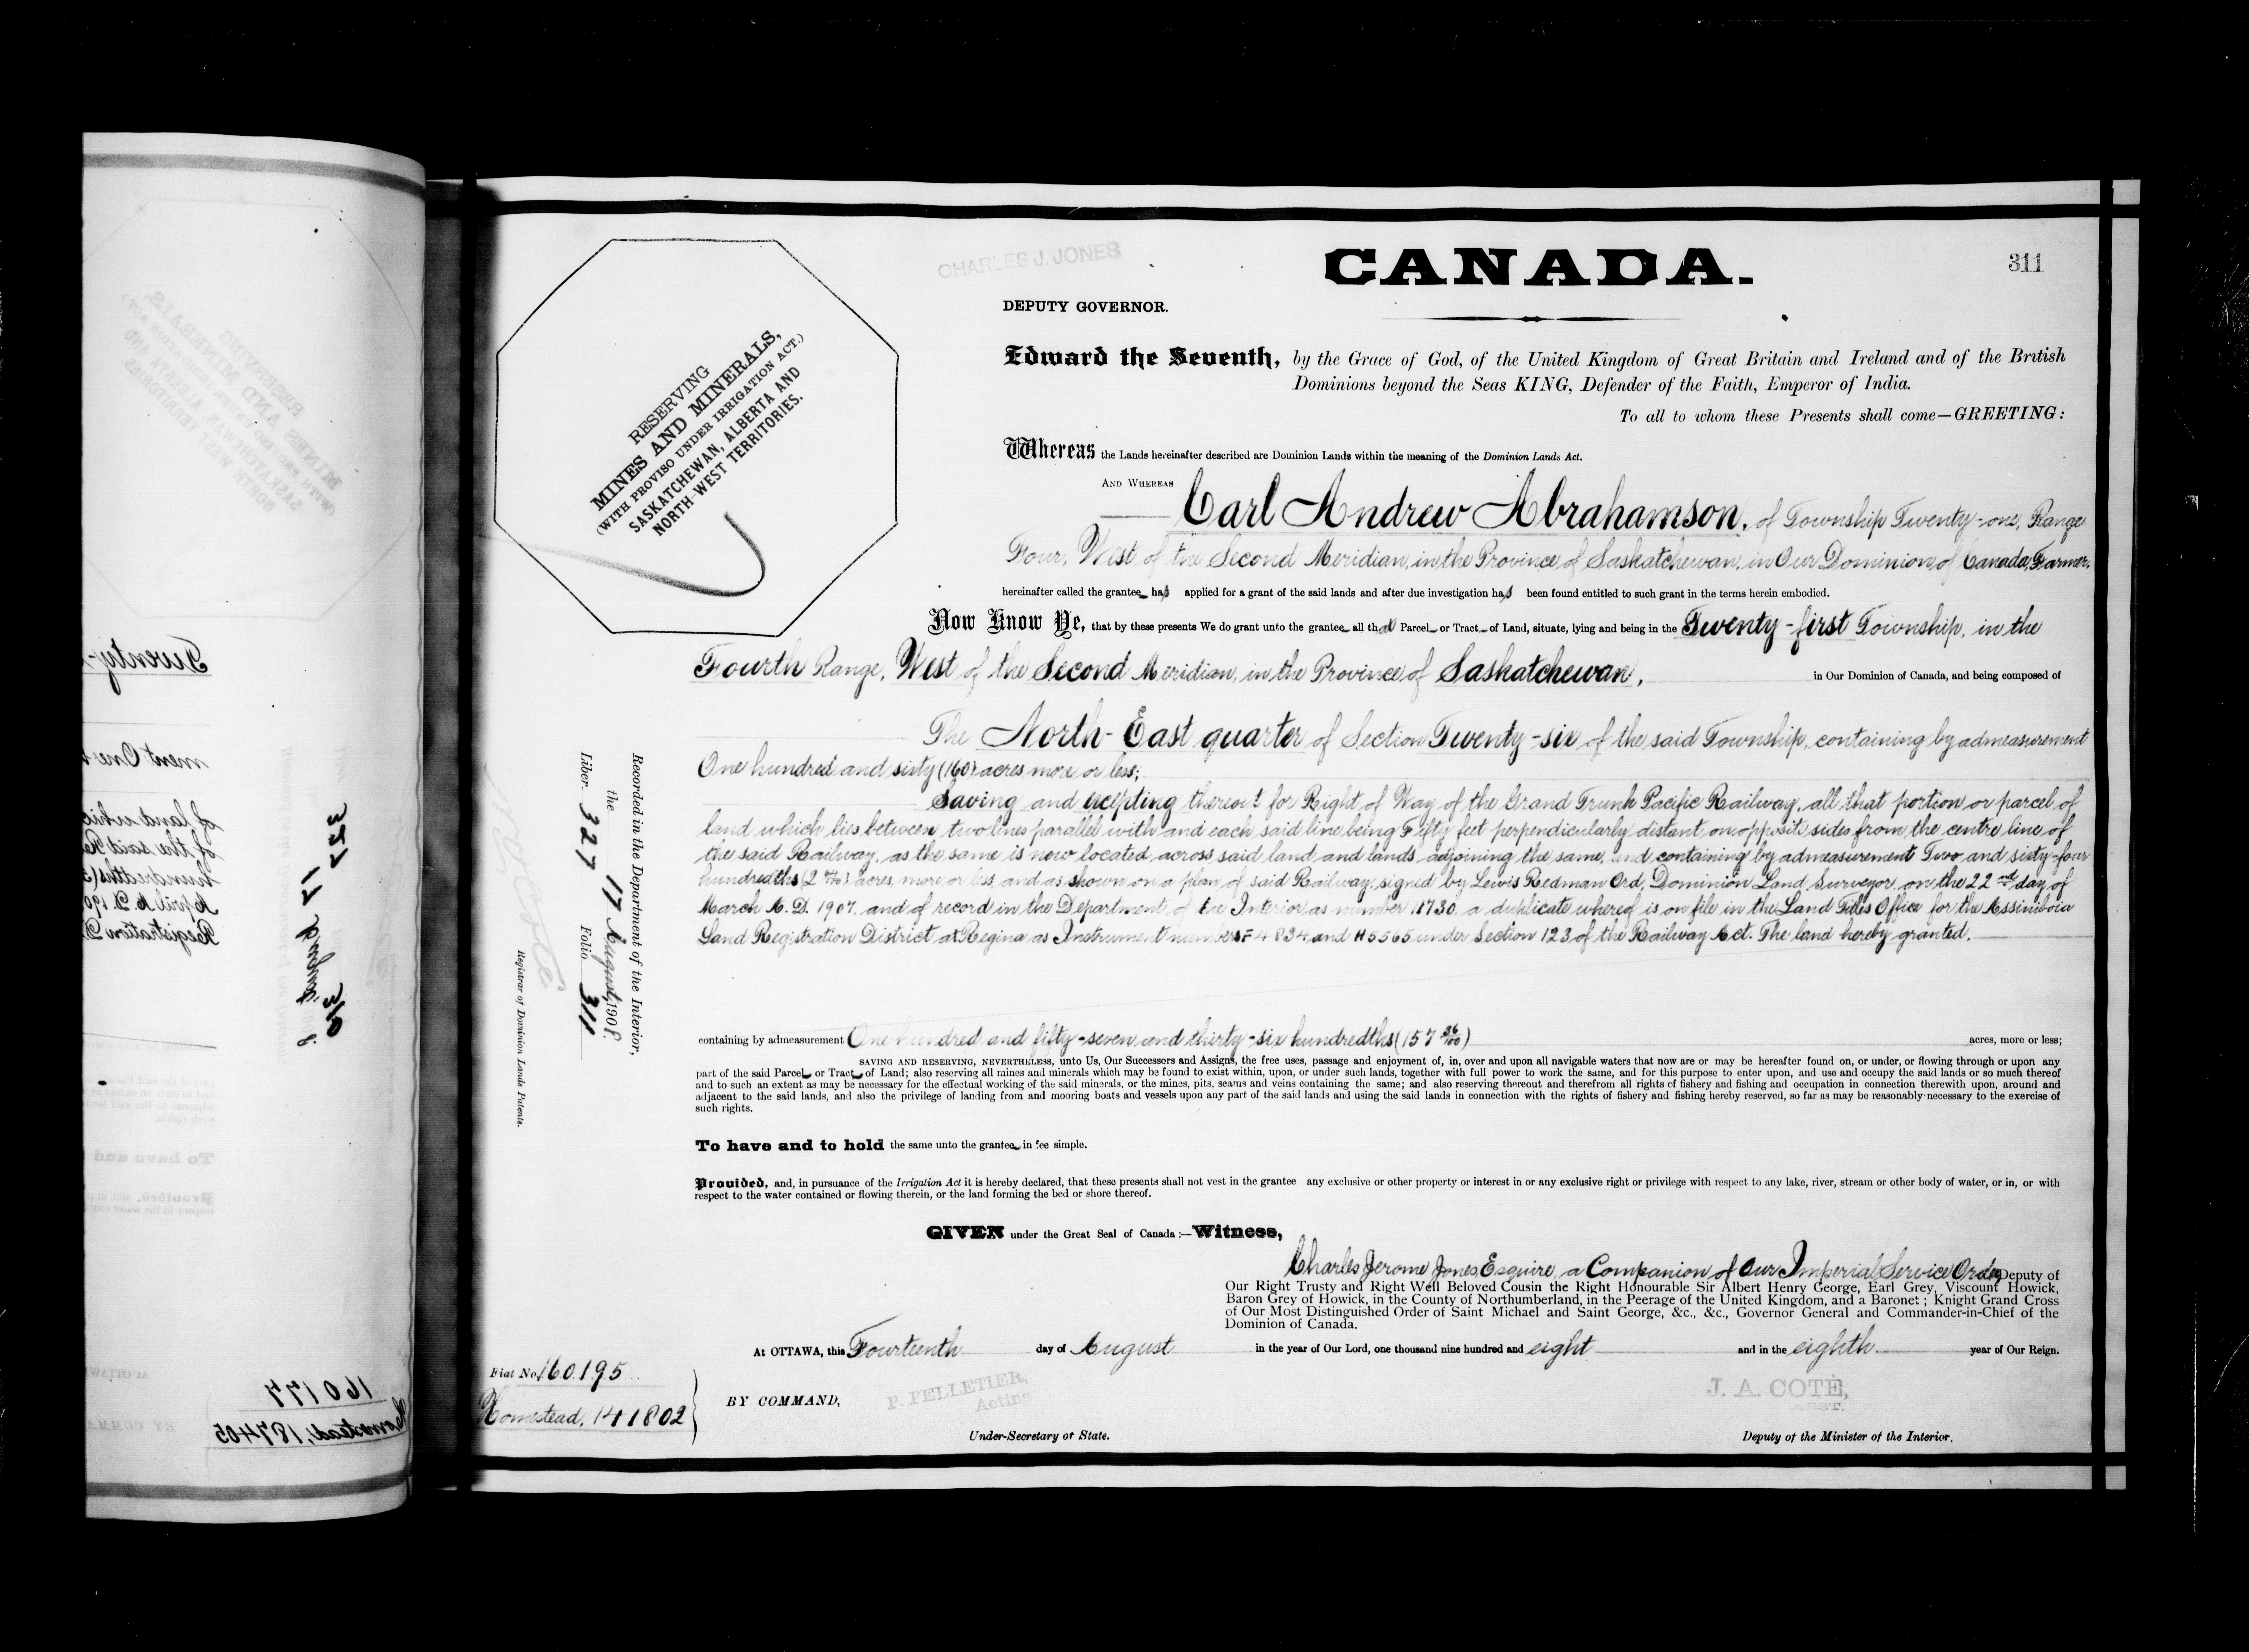 CHARLES J. JONES
CANADA.
311
DEPUTY GOVERNOR.
Edward the Seventh, by the Grace of God, of the United Kingdom of Great Britain and Ireland and of the British
Dominions beyond the Seas KING, Defender of the Faith, Emperor of India.
To all to whom these Presents shall come—GREETING:
RESERVING
MINES AND MINERALS,
(WITH PROVISO UNDER IRRIGATION ACT.)
SASKATCHEWAN, ALBERTA AND
NORTH-WEST TERRITORIES.
Whereas the Lands hereinafter described are Dominion Lands within the meaning of the Dominion Lands Act.
AND WHEREAS Carl Andrew Abrahamson, of Township Twenty-one, Range
Four, West of the Second Meridian, in the Province of Saskatchewan, in Our Dominion of Canada, Farmer,
hereinafter called the grantee has applied for a grant of the said lands and after due investigation has been found entitled to such grant in the terms herein embodied.
Now Know Ye, that by these presents We do grant unto the grantee all that Parcel or Tract of Land, situate, lying and being in the Twenty-first Township, in the
Fourth Range, West of the Second Meridian, in the Province of Saskatchewan, in Our Dominion of Canada, and being composed of
The North-East quarter of Section Twenty-six of the said Township, containing by admeasurement
One hundred and sixty (160) acres more or less;
Saving and excepting thereout for Right of Way of the Grand Trunk Pacific Railway, all that portion or parcel of
land which lies between two lines parallel with and each said line being Fifty feet perpendicularly distant on opposite sides from the centre line of
the said Railway, as the same is now located across said land and lands adjoining the same, and containing by admeasurement Two and sixty-four
hundredths (2 64/100) acres, more or less, and as shown on a plan of said Railway, signed by Lewis Redman Ord, Dominion Land Surveyor, on the 22nd day of
March A.D. 1907, and of record in the Department of the Interior as number 11730, a duplicate whereof is on file in the Land Titles Office for the Assiniboia
Land Registration District at Regina as Instrument numbers F4834 and H5565 under Section 123 of the Railway Act. The land hereby granted,
containing by admeasurement One hundred and fifty-seven and thirty-six hundredths (157 36/100) acres, more or less;
SAVING AND RESERVING, NEVERTHELESS, unto Us, Our Successors and Assigns, the free uses, passage and enjoyment of, in, over and upon all navigable waters that now are or may be hereafter found on, or under, or flowing through or upon any
part of the said Parcel or Tract of Land; also reserving all mines and minerals which may be found to exist within, upon, or under such lands, together with full power to work the same, and for this purpose to enter upon, and use and occupy the said lands or so much thereof
and to such an extent as may be necessary for the effectual working of the said minerals, or the mines, pits, seams and veins containing the same; and also reserving thereout and therefrom all rights of fishery and fishing and occupation in connection therewith upon, around and
adjacent to the said lands, and also the privilege of landing from and mooring boats and vessels upon any part of the said lands and using the said lands in connection with the rights of fishery and fishing hereby reserved, so far as may be reasonably necessary to the exercise of
such rights.
To have and to hold the same unto the grantee in fee simple.
Provided, and, in pursuance of the Irrigation Act it is hereby declared, that these presents shall not vest in the grantee any exclusive or other property or interest in or any exclusive right or privilege with respect to any lake, river, stream or other body of water, or in, or with
respect to the water contained or flowing therein, or the land forming the bed or shore thereof.
GIVEN under the Great Seal of Canada:—Witness,
Charles Jerome Jones Esquire, a Companion of Our Imperial Service Order, Deputy of
Our Right Trusty and Right Well Beloved Cousin the Right Honourable Sir Albert Henry George, Earl Grey, Viscount Howick,
Baron Grey of Howick, in the County of Northumberland, in the Peerage of the United Kingdom, and a Baronet; Knight Grand Cross
of Our Most Distinguished Order of Saint Michael and Saint George, &c., &c., Governor General and Commander-in-Chief of the
Dominion of Canada.
At OTTAWA, this Fourteenth day of August in the year of Our Lord, one thousand nine hundred and eight and in the eighth year of Our Reign.
BY COMMAND,
P. PELLETIER,
Acting
J. A. COTÉ,
ASST.
Under-Secretary of State.
Deputy of the Minister of the Interior.
Fiat No. 160195
Homestead, 141802
Recorded in the Department of the Interior,
the 17 August, 1908
Liber 327 Folio 311
Registrar of Dominion Lands Patents.
327
17 August 8
310
160177
Homestead, 187405